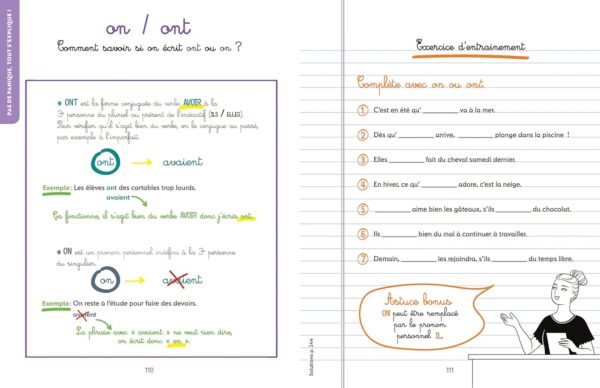 PAS DE PANIQUE, TOUT S'EXPLIQUE !
on / ont
Comment savoir si on écrit ont ou on ?
* ONT est la forme conjuguée du verbe AVOIR à la
3e personne du pluriel au présent de l'indicatif (ILS / ELLES).
Pour vérifier qu'il s'agit bien du verbe, on le conjugue au passé,
par exemple à l'imparfait.
ont → avaient
Exemple : Les élèves ont des cartables trop lourds.
avaient
Ça fonctionne, il s'agit bien du verbe AVOIR donc j'écris ont.
* ON est un pronom personnel indéfini à la 3e personne
du singulier.
on → avaient
Exemple : On reste à l'étude pour faire des devoirs.
avaient
La phrase avec « avaient » ne veut rien dire,
on écrit donc « on ».
110
Exercice d'entrainement
Complète avec on ou ont.
1 C'est en été qu' ________ va à la mer.
2 Dès qu' ________ arrive, ________ plonge dans la piscine !
3 Elles ________ fait du cheval samedi dernier.
4 En hiver, ce qu' ________ adore, c'est la neige.
5 ________ aime bien les gâteaux, s'ils ________ du chocolat.
6 Ils ________ bien du mal à continuer à travailler.
7 Demain, ________ les rejoindra, s'ils ________ du temps libre.
Astuce bonus
ON peut être remplacé
par le pronom
personnel IL.
Solutions p. 244
111